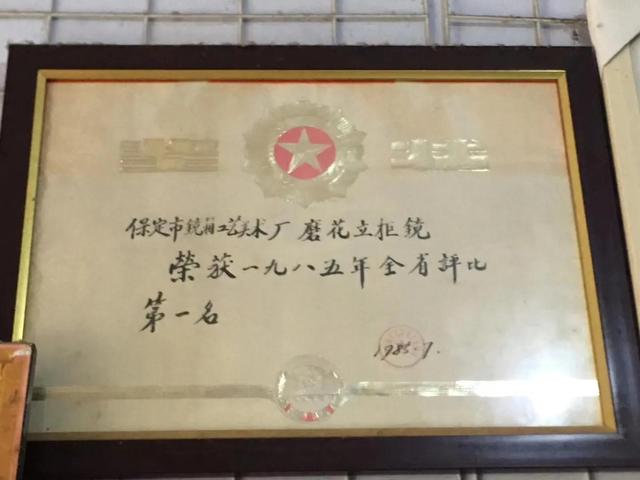 保定市镜相工艺美术厂磨花立柜镜
荣获一九八五年全省評比
第一名
1985.7.